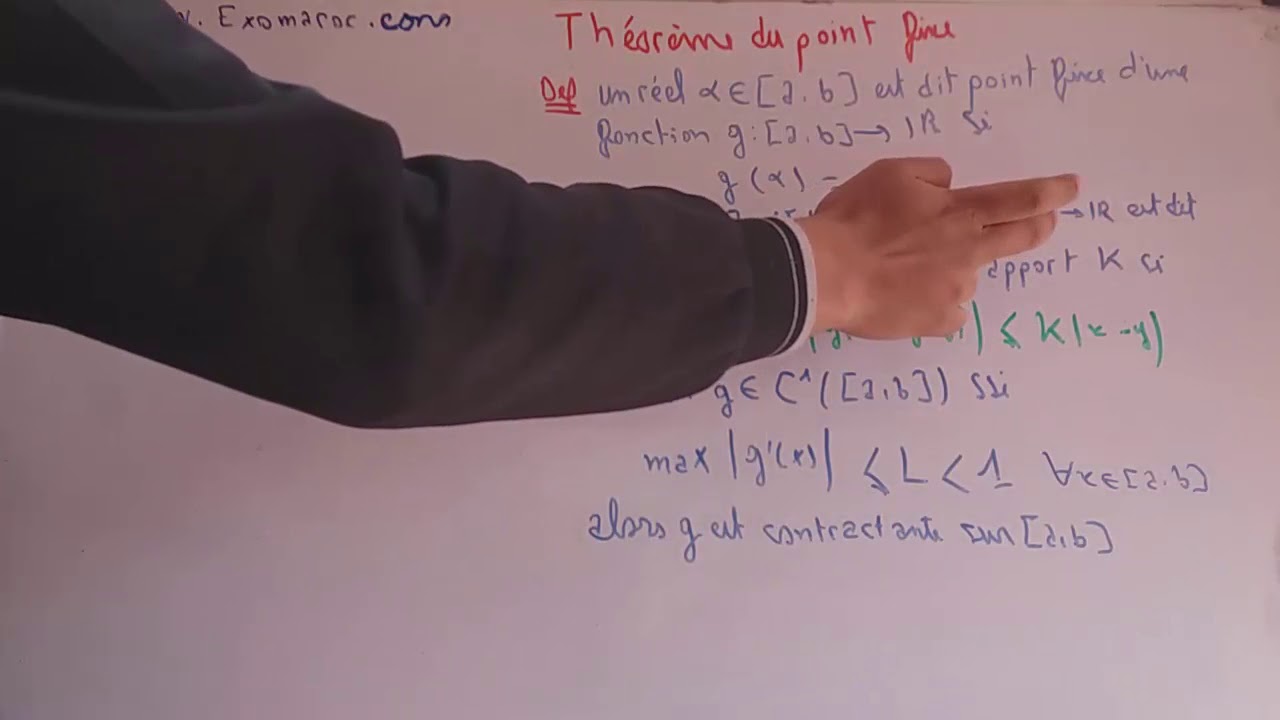 . Exomaroc.com
Théorème du point fixe
Def un réel α ∈ [a, b] est dit point fixe d'une
fonction g: [a, b] → IR si
g(α) =
→ IR est dit
apport K si
| ≤ K|x - y|
g ∈ C¹([a, b]) ssi
max |g'(x)| ≤ L < 1 ∀x∈[a, b]
alors g est contractante sur [a, b]